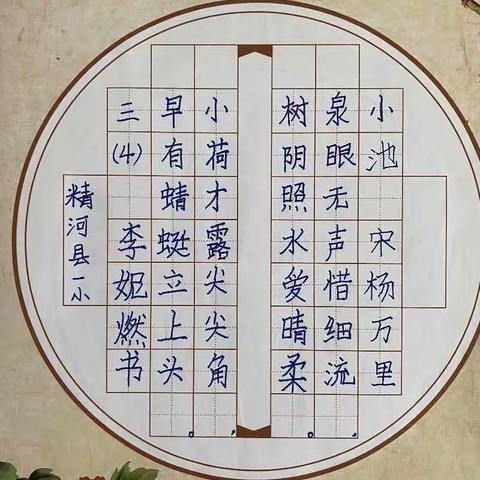 小池 宋杨万里
泉眼无声惜细流，
树阴照水爱晴柔。
小荷才露尖尖角，
早有蜻蜓立上头。
三(4) 李妮燃书
精河县一小